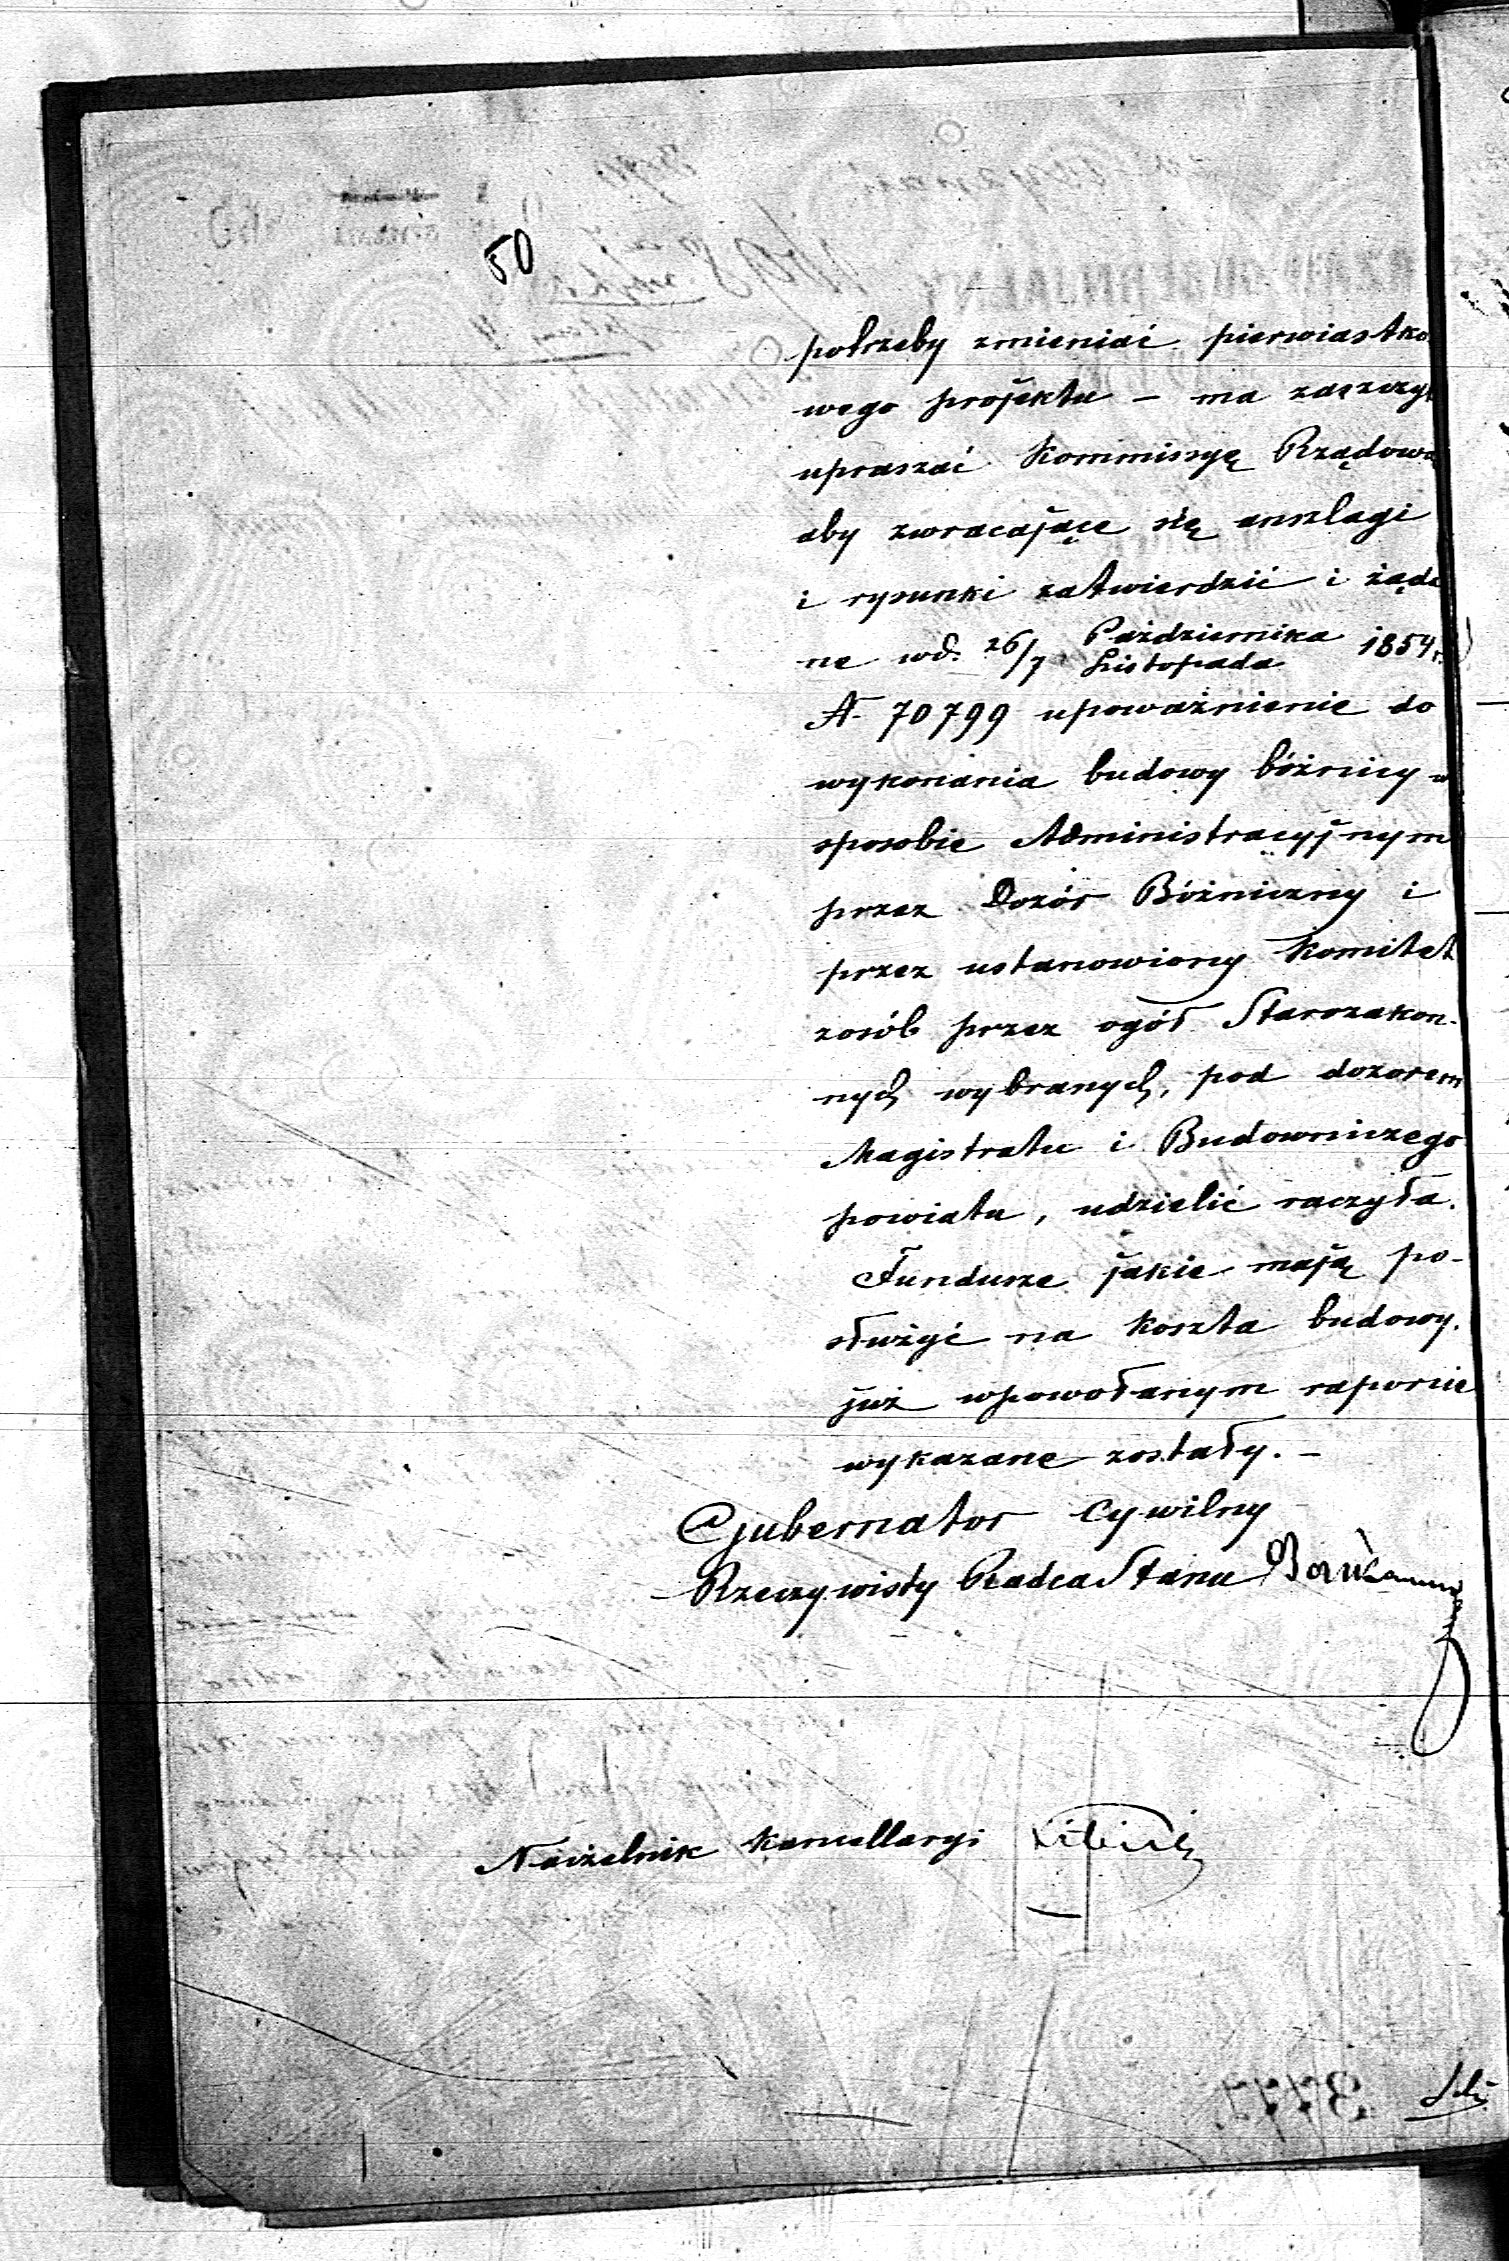 50
potrzeby zmieniać pierwiastko
wego projektu – ma zaszczyt
upraszać Kommissyę Rządową
aby zwracające się anszlagi
i rysunki zatwierdzić i żąda
ne wd. 26/7 Października/Listopada 1854 r.
N. 70799 upoważnienie do
wykonania budowy bóżnicy w
sposobie Administracyjnym
przez Dozór Bóżniczny i
przez ustanowiony Komitet
zosób przez ogół Starozakon-
nych wybranych, pod dozorem
Magistratu i Budowniczego
powiatu, udzielić raczyła.
Fundusze jakie mają po-
służyć na koszta budowy.
już wpowołanym raporcie
wykazane zostały. –
Gubernator Cywilny
Rzeczywisty Radca Stanu
Naczelnik Kancellaryi